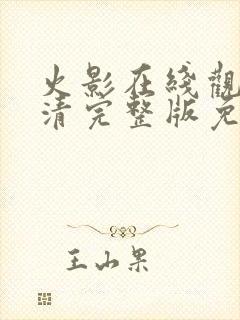 火影在綫觀
清完整版免
王山果